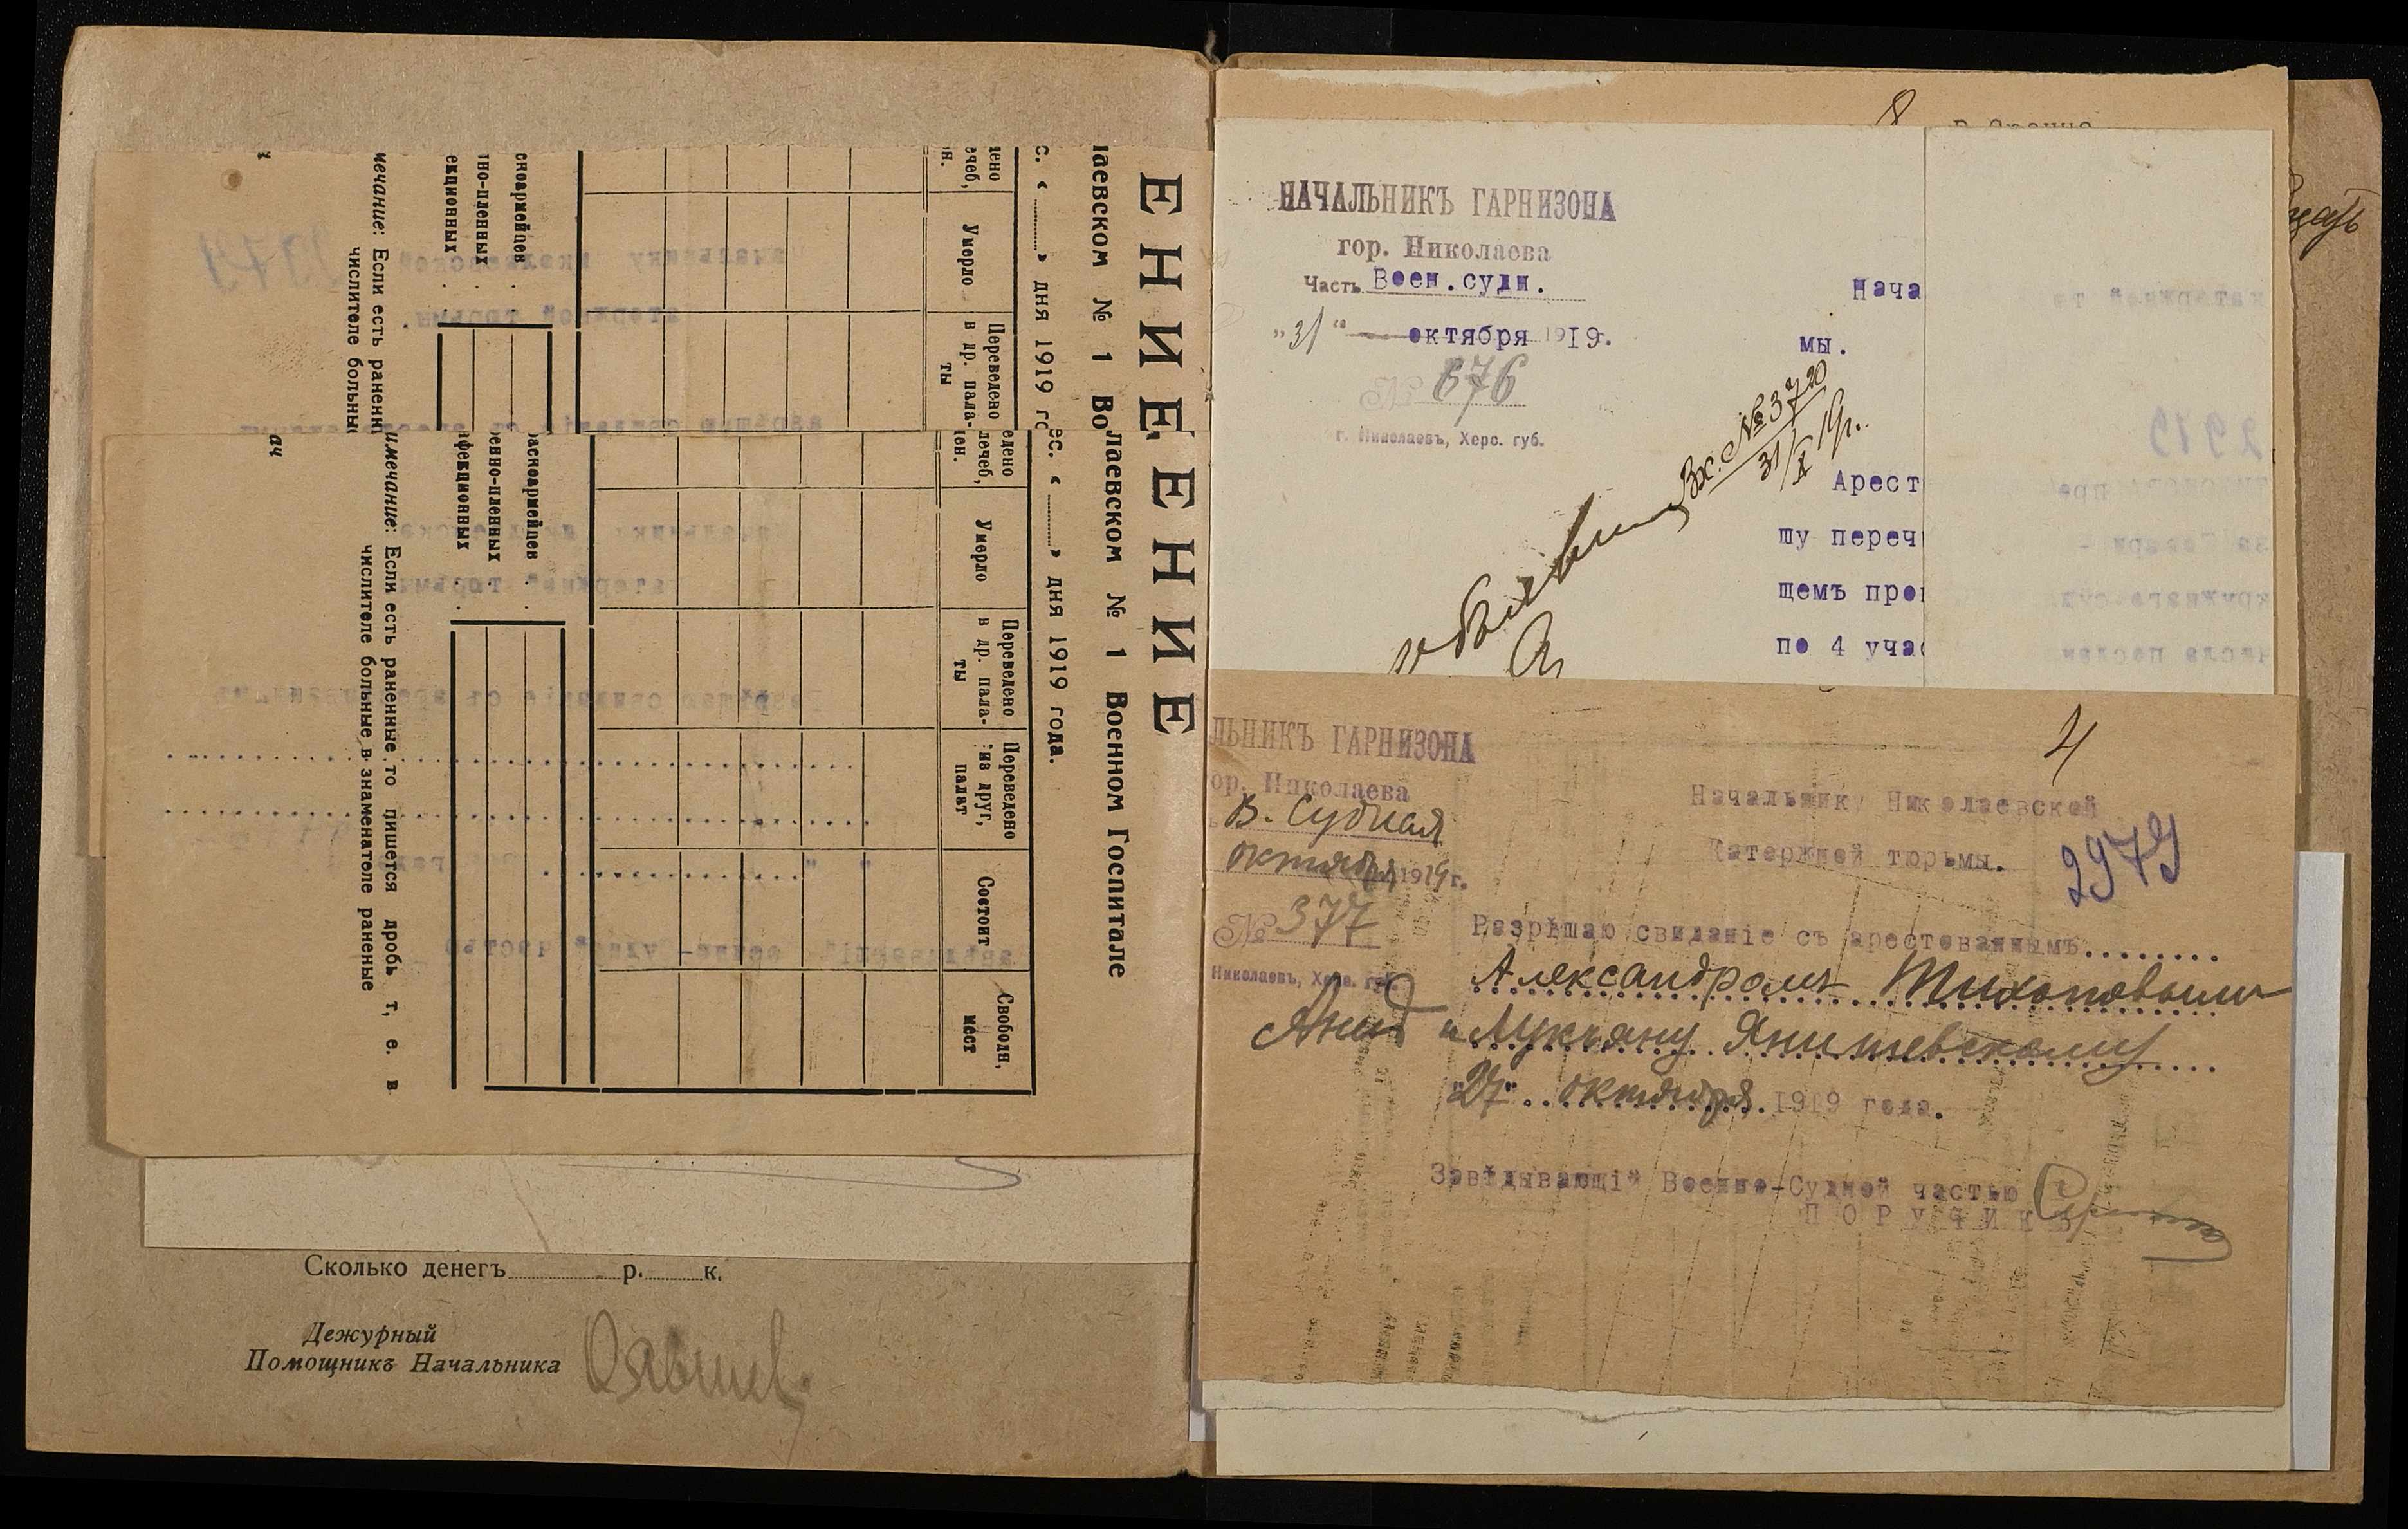 ЕНИЕ
лаевском № 1 Во
с. « » дня 1919 го
Умерло
Переведено
в др. пала-
ты
сноармейцев
нно-пленных
екционных
мечание: Если есть раненны
числителе больны
ЕНИЕ
лаевском № 1 Военном Госпитале
ес. « » дня 1919 года.
едено
лечеб,
ен.
Умерло
Переведено
в др. пала-
ты
Переведено
из друг,
палат
Состоит
Свободн,
мест
расноармейцев
оенно-пленных
нфекционных
имечание: Если есть раненные то пишется дробь т, е. в
числителе больные в знаменателе раненые
ач
Сколько денегъ р. к.
Дежурный
Помощникъ Начальника
8
НАЧАЛЬНИКЪ ГАРНИЗОНА
гор. Николаева
Часть Воен.судн.
"31" октября 1919г.
№ 676
г. Николаевъ, Херс. губ.
Нача
мы.
Вх. № 3720
31/X 19г.
Арест
шу переч
щемъ про
по 4 учас
4
ЛЬНИКЪ ГАРНИЗОНА
ор. Николаева
В. Судная
октября 1919г.
№ 377
Николаевъ, Херс. губ.
Начальнику Николаевской
Каторжной тюрьмы.
2979
Разрѣшаю свиданіе съ арестованнымъ........
Александромъ Тихоновымъ
и Лукьяну Янишевскому
"27" октября 1919 года.
Завѣдывающій Военно-Судной частью
ПОРУЧИКЪ